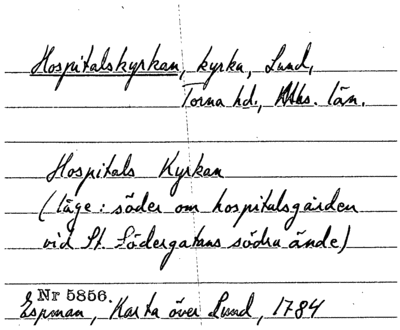 Hospitalskyrkan, kyrka, Lund,
Torna hd., Mlhs. län.
Hospitals Kyrkan
(läge: söder om hospitalsgården
vid St. Södergatans södra ände)
Nr 5856.
Espman, Karta över Lund, 1784